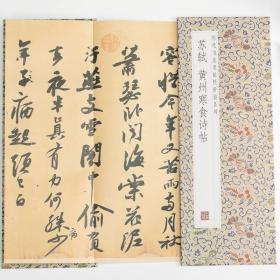 苏轼 黄州寒食诗帖
容惜今年又苦雨兩月秋
蕭瑟卧聞海棠花泥
汙燕支雪闇中偷負
去夜半真有力何殊少
年子病起須已白